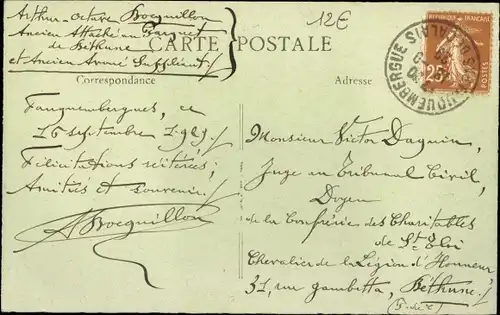 Arthur-Octave Bocquillon
Ancien Attaché au Parquet
de Béthune
et Ancien Avoué Suppléant
12€
CARTE POSTALE
Correspondance
Adresse
FAUQUEMBERGUE
PAS DE CALAIS
25
POSTES
Fauquembergues, ce
16 septembre 1929
Félicitations réitérées;
Amitiés et souvenir.
ABocquillon
Monsieur Victor Daquin,
Juge au Tribunal Civil,
Doyen
de la Confrérie des Charitables
de St Eloi
Chevalier de la Légion d'Honneur
31, rue gambetta,
Béthune
(P. de C.)